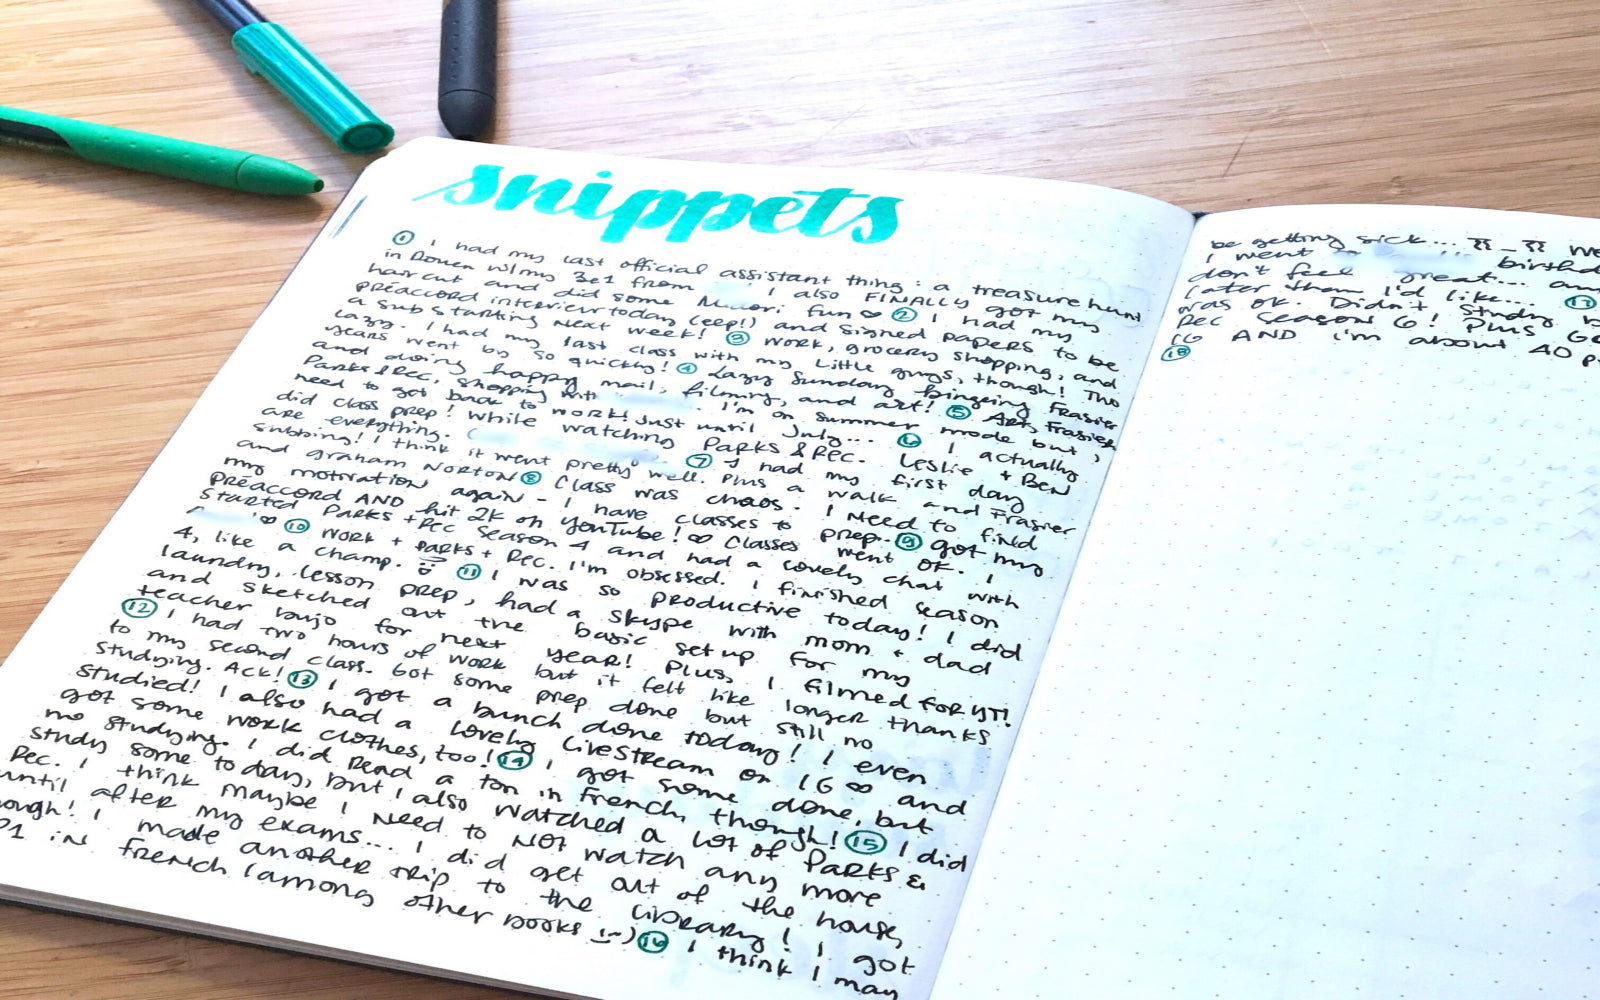 snippets
① I had my last official assistant thing: a treasure hunt
in Rouen w/ my 3e1 from I also FINALLY got my
hair cut and did some Midori fun ∞ ② I had my
préaccord interview today (eep!) and signed papers to be
a sub starting next week! ③ Work, grocery shopping, and
lazy. I had my last class with my little guys, though! Two
years went by so quickly! ④ Lazy Sunday bingeing Frasier
and doing happy mail, filming, and art! ⑤ Art, Frasier,
Parks & Rec, shopping with I'm on summer mode but I
need to get back to work! Just until July... ⑥ I actually
did class prep! While watching Parks & Rec. Leslie + Ben
are everything. ( ⑦ I had my first day
subbing! I think it went pretty well. Plus a walk and Frasier
and Graham Norton ⑧ Class was chaos. I need to find
my motivation again - I have classes to prep. ⑨ Got my
préaccord AND hit 2K on YouTube! ∞ Classes went OK. I
started Parks + Rec Season 4 and had a lovely chat with
∞ ⑩ Work + Parks + Rec. I'm obsessed. I finished season
4, like a champ. ⑪ I was so productive today! I did
laundry, lesson prep, had a Skype with mom + dad
and sketched out the basic set up for my
teacher bujo for next year! Plus, I filmed for YT!
⑫ I had two hours of work but it felt like longer thanks
to my second class. Got some prep done but still no
studying. Ack! ⑬ I got a bunch done today! I even
studied! I also had a lovely livestream on IG ∞ and
got some work clothes, too! ⑭ I got some done, but
no studying. I did read a ton in French, though! ⑮ I did
study some today, but I also watched a lot of Parks &
Rec. I think maybe I need to NOT watch any more
until after my exams... I did get out of the house,
ough! I made another trip to the library! I got
P1 in French (among other books :-) ⑯ I think I may
be getting sick... We
I went birthd
don't feel great... an
later than I'd like... ⑰
was OK. Didn't study
Rec Season 6! Plus
IG AND I'm about 40 p
⑱